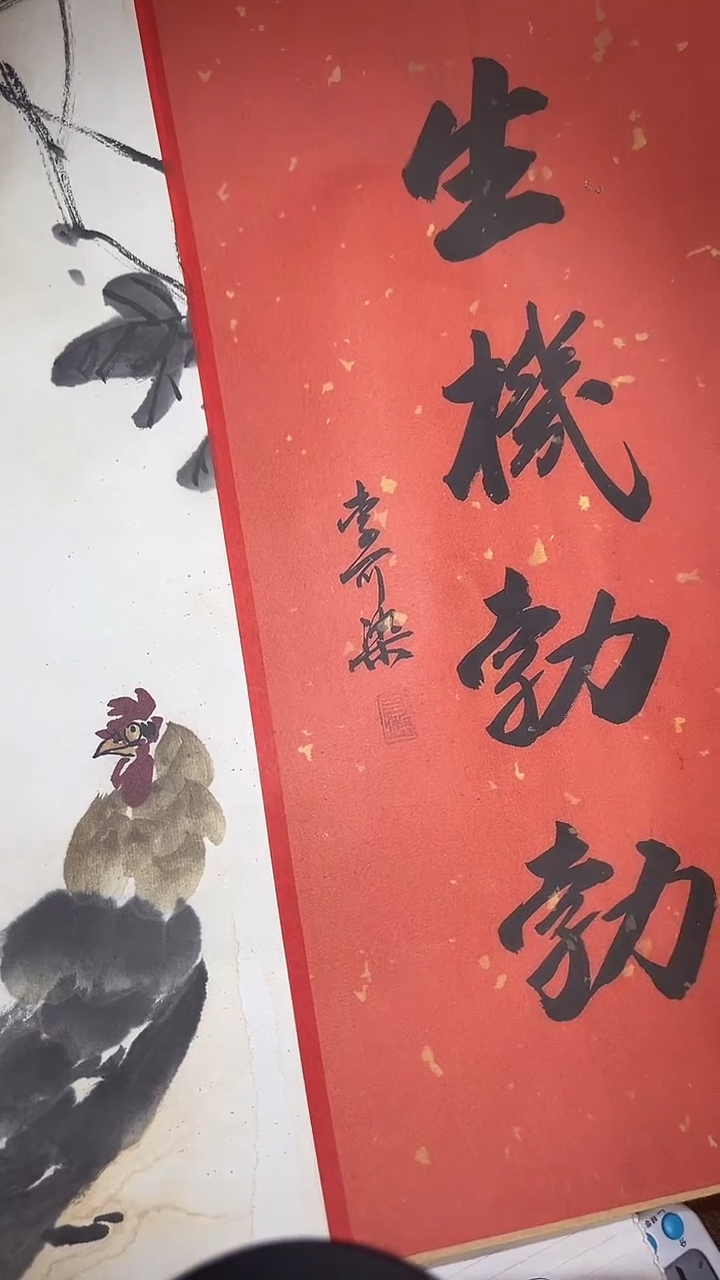 生機勃勃
李可染